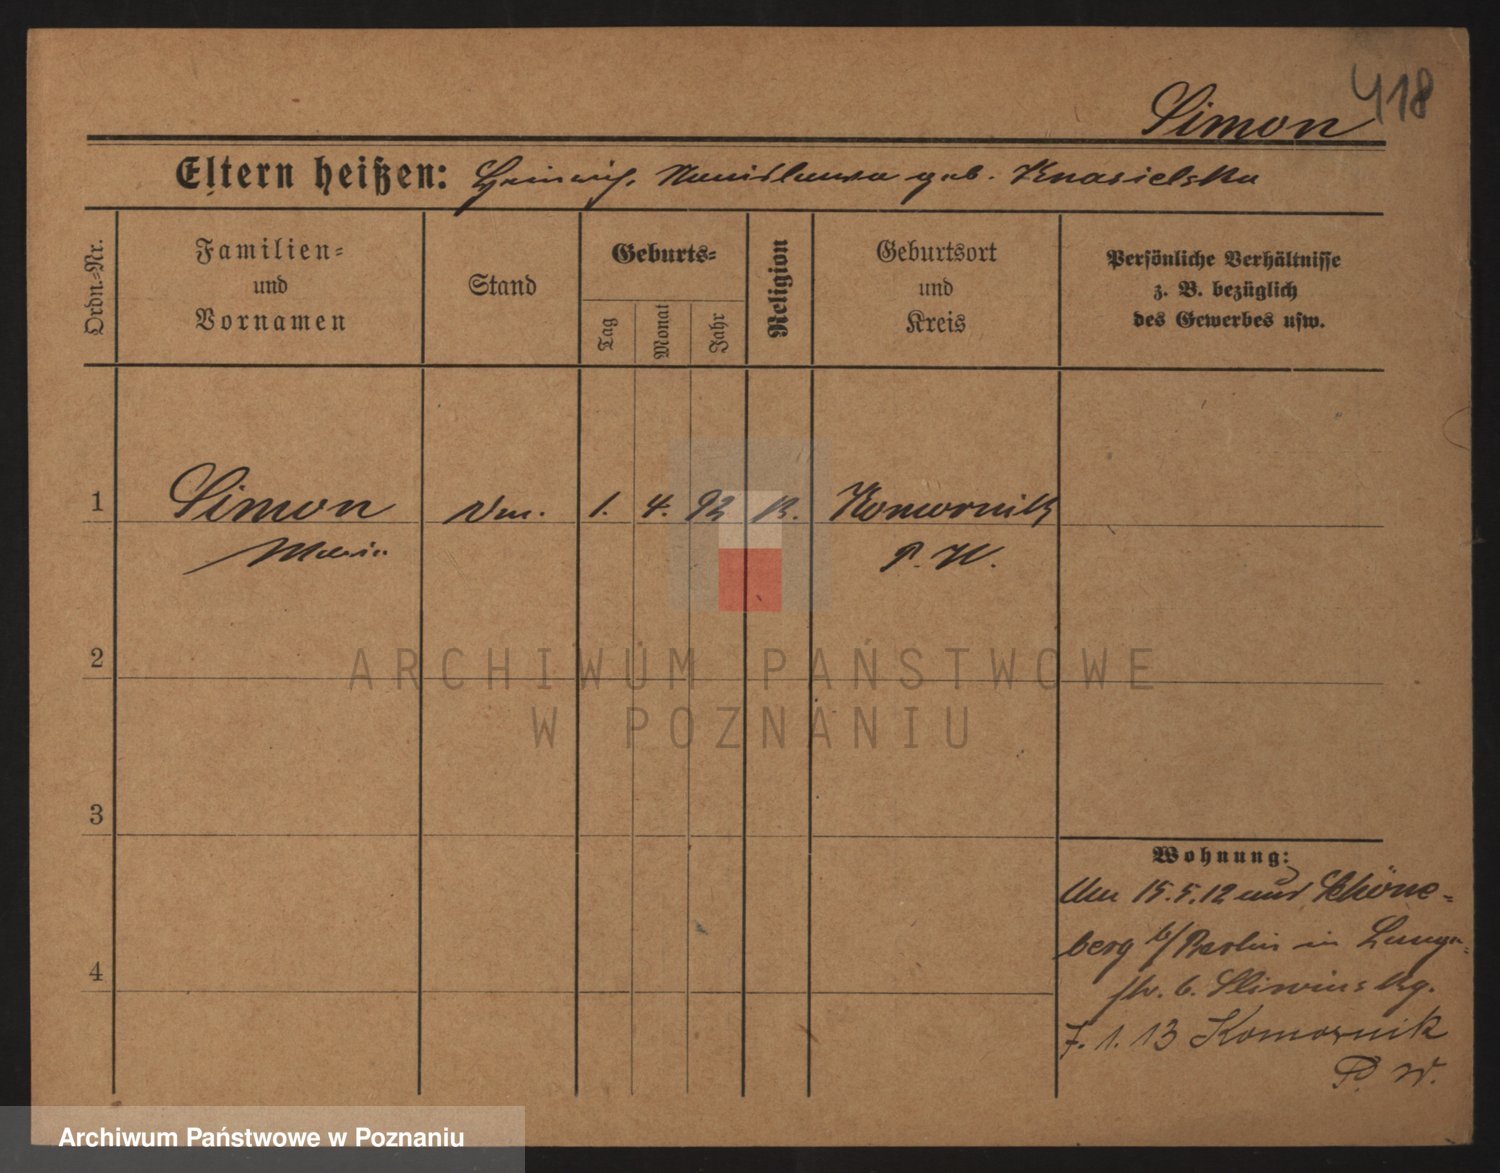 418
Simon
Eltern heißen: Heinrich. Stanislawa geb. Knasielska
Ordn.-Nr.
Familien-
und
Vornamen
Stand
Geburts-
Tag
Monat
Jahr
Religion
Geburtsort
und
Kreis
Persönliche Verhältnisse
z. B. bezüglich
des Gewerbes usw.
1
Simon
1. 4. 92
Komornik
Maria
P. W.
2
3
4
Wohnung:
15.5.12 Schöne-
berg b/Berlin in
7. 1. 13 Komornik
P. W.
ARCHIWUM PAŃSTWOWE
W POZNANIU
Archiwum Państwowe w Poznaniu